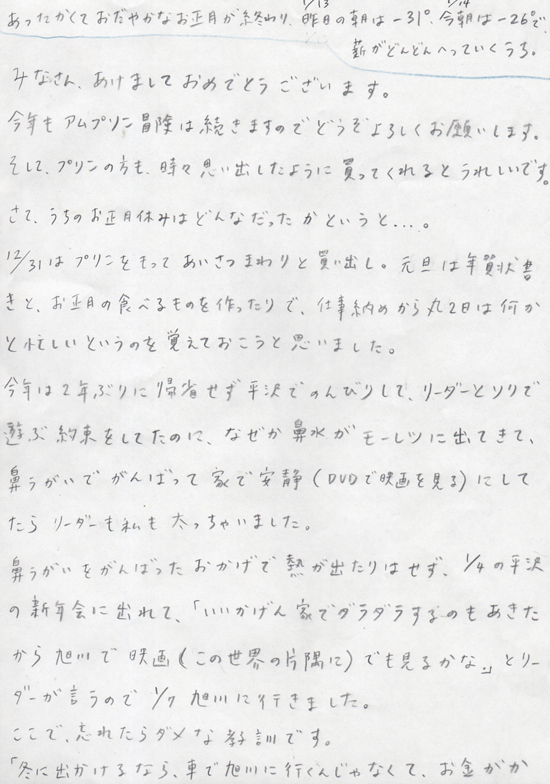 あったかくておだやかなお正月が終わり、昨日の朝は−31°、今朝は−26°で、
1/13 1/14
薪がどんどんへっていくうち。
みなさん、あけましておめでとうございます。
今年もアムプリン冒険は続きますのでどうぞよろしくお願いします。
そして、プリンの方も、時々思い出したように買ってくれるとうれしいです。
さて、うちのお正月休みはどんなだったかというと…。
12/31はプリンをもってあいさつまわりと買い出し。元旦は年賀状書
きと、お正月の食べるものを作ったりで、仕事納めから丸2日は何か
と忙しいというのを覚えておこうと思いました。
今年は2年ぶりに帰省せず平沢でのんびりして、リーダーとソリで
遊ぶ約束をしてたのに、なぜか鼻水がモーレツに出てきて、
鼻うがいでがんばって家で安静(DVDで映画を見る)にして
たらリーダーも私も太っちゃいました。
鼻うがいをがんばったおかげで熱が出たりはせず、1/4の平沢
の新年会に出れて、「いいかげん家でダラダラするのもあきた
から旭川で映画(この世界の片隅に)でも見るかな。」とリー
ダーが言うので1/7旭川に行きました。
ここで、忘れたらダメな教訓です。
「冬に出かけるなら、車で旭川に行くんじゃなくて、お金がか